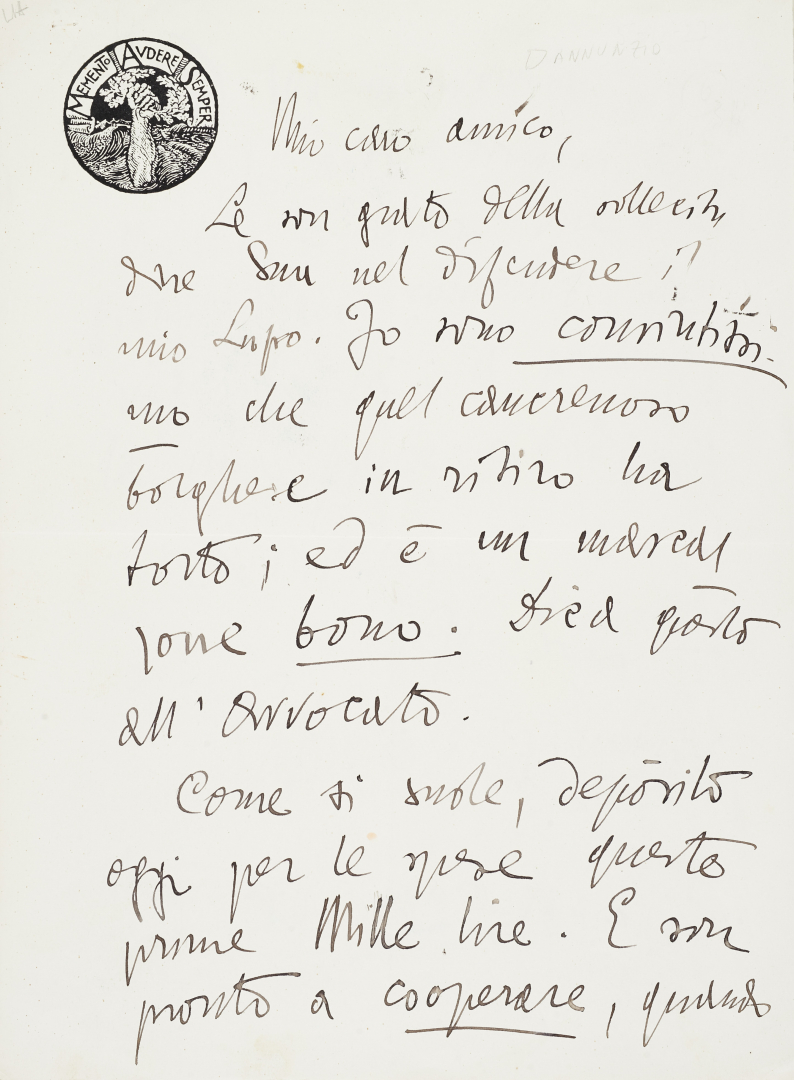 D'ANNUNZIO
MEMENTO AVDERE SEMPER
Mio caro amico,
Le son grato della sollecitu
dine Sua nel difendere il
mio Lupo. Io sono convintissi-
mo che quel cancrenoso
borghese in ritiro ha
torto; ed è un mascal
zone bono. Dica questo
all'Avvocato.
Come si suole, deposito
oggi per le spese queste
prime Mille lire. E son
pronto a cooperare, quando